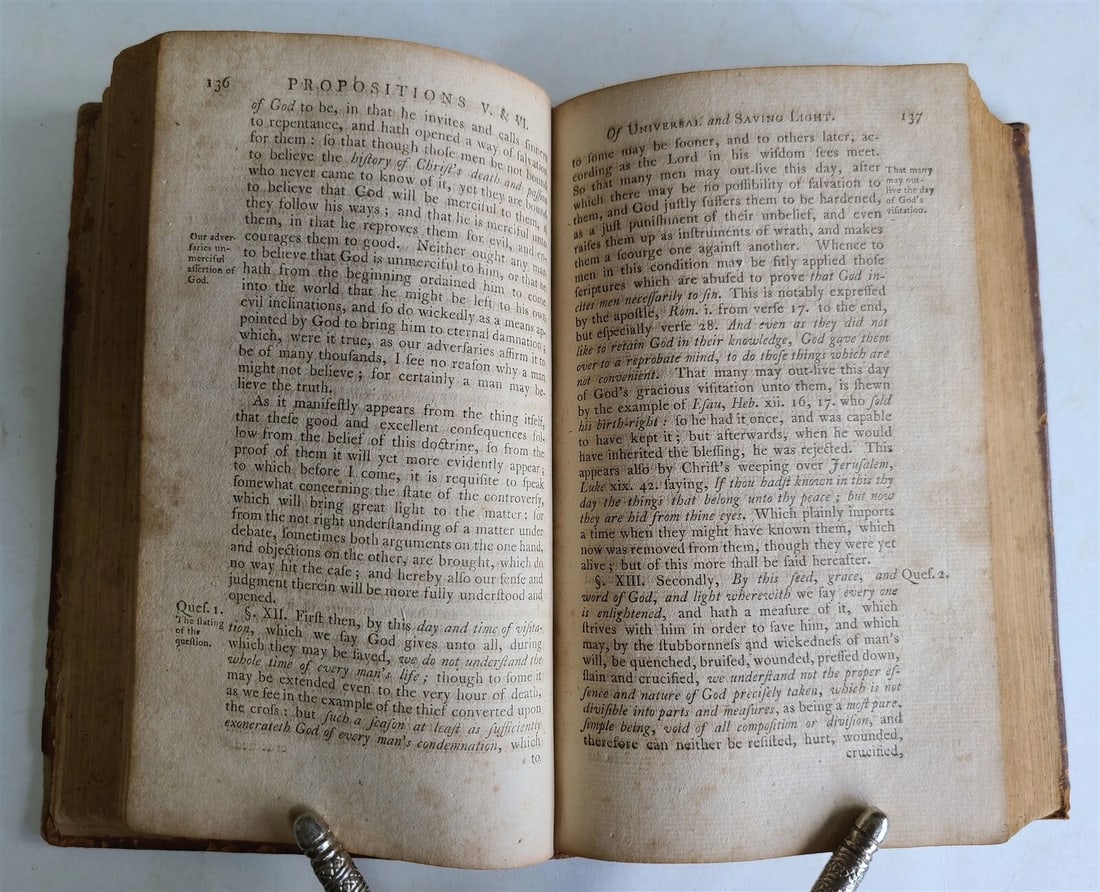 136
PROPOSITIONS V. & VI.
of God to be, in that he invites and calls ſinners
to repentance, and hath opened a way of ſalvation
for them: ſo that though thoſe men be not bound
to believe the hiſtory of Chriſt's death and paſſion
who never came to know of it, yet they are bound
to believe that God will be merciful to them, if
they follow his ways; and that he is merciful unto
them, in that he reproves them for evil, and en-
courages them to good. Neither ought any man
to believe that God is unmerciful to him, or that he
hath from the beginning ordained him to come
into the world that he might be left to his own
evil inclinations, and ſo do wickedly as a means ap-
pointed by God to bring him to eternal damnation;
which, were it true, as our adverſaries affirm it to
be of many thouſands, I ſee no reaſon why a man
might not believe; for certainly a man may be-
lieve the truth.
Our adver-
ſaries un-
merciful
aſſertion of
God.
As it manifeſtly appears from the thing itſelf,
that theſe good and excellent conſequences fol-
low from the belief of this doctrine, ſo from the
proof of them it will yet more evidently appear;
to which before I come, it is requiſite to ſpeak
ſomewhat concerning the ſtate of the controverſy,
which will bring great light to the matter: for
from the not right underſtanding of a matter under
debate, ſometimes both arguments on the one hand,
and objections on the other, are brought, which do
no way hit the caſe; and hereby alſo our ſenſe and
judgment therein will be more fully underſtood and
opened.
Queſ. 1.
The ſtating
of the
queſtion.
§. XII. Firſt then, by this day and time of viſita-
tion, which we ſay God gives unto all, during
which they may be ſaved, we do not underſtand the
whole time of every man's life; though to ſome it
may be extended even to the very hour of death,
as we ſee in the example of the thief converted upon
the croſs: but ſuch a ſeaſon at leaſt as ſufficiently
exonerateth God of every man's condemnation, which
to
Of UNIVERSAL and SAVING LIGHT.
137
to ſome may be ſooner, and to others later, ac-
cording as the Lord in his wiſdom ſees meet.
So that many men may out-live this day, after
which there may be no poſſibility of ſalvation to
them, and God juſtly ſuffers them to be hardened,
as a juſt puniſhment of their unbelief, and even
raiſes them up as inſtruments of wrath, and makes
them a ſcourge one againſt another. Whence to
men in this condition may be fitly applied thoſe
ſcriptures which are abuſed to prove that God in-
cites men neceſſarily to ſin. This is notably expreſſed
by the apoſtle, Rom. i. from verſe 17. to the end,
but eſpecially verſe 28. And even as they did not
like to retain God in their knowledge, God gave them
over to a reprobate mind, to do thoſe things which are
not convenient. That many may out-live this day
of God's gracious viſitation unto them, is ſhewn
by the example of Eſau, Heb. xii. 16, 17. who ſold
his birth-right: ſo he had it once, and was capable
to have kept it; but afterwards, when he would
have inherited the bleſſing, he was rejected. This
appears alſo by Chriſt's weeping over Jeruſalem,
Luke xix. 42. ſaying, If thou hadſt known in this thy
day the things that belong unto thy peace; but now
they are hid from thine eyes. Which plainly imports
a time when they might have known them, which
now was removed from them, though they were yet
alive; but of this more ſhall be ſaid hereafter.
That many
may out-
live the day
of God's
viſitation.
§. XIII. Secondly, By this ſeed, grace, and
word of God, and light wherewith we ſay every one
is enlightened, and hath a meaſure of it, which
ſtrives with him in order to ſave him, and which
may, by the ſtubbornneſs and wickedneſs of man's
will, be quenched, bruiſed, wounded, preſſed down,
ſlain and crucified, we underſtand not the proper eſ-
ſence and nature of God preciſely taken, which is not
diviſible into parts and meaſures, as being a moſt pure,
ſimple being, void of all compoſition or diviſion, and
therefore can neither be reſiſted, hurt, wounded,
crucified,
Queſ. 2.